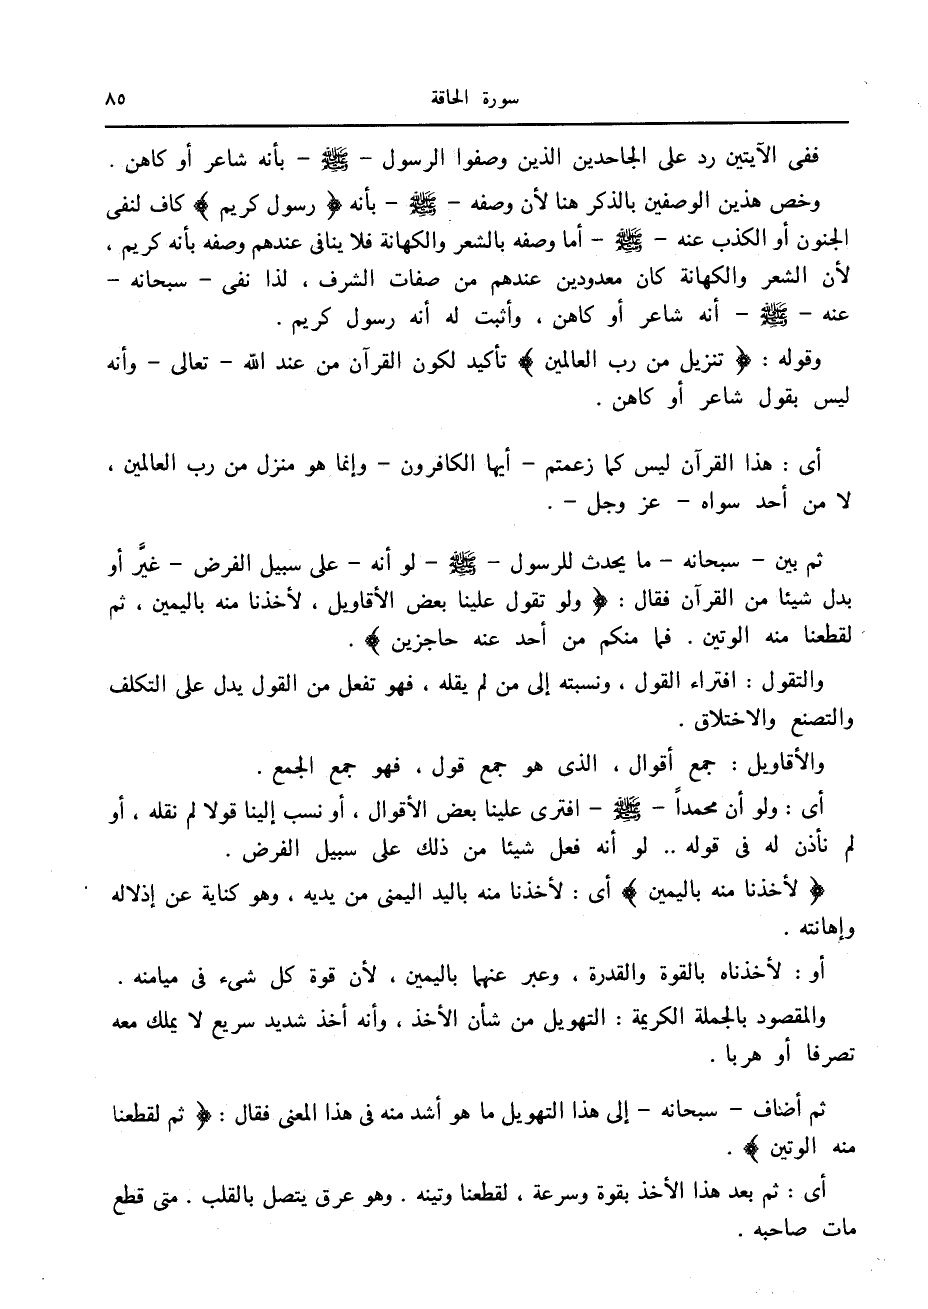 سورة الحاقة ٨٥
ففى الآيتين رد على الجاحدين الذين وصفوا الرسول – ﷺ – بأنه شاعر أو كاهن .
وخص هذين الوصفين بالذكر هنا لأن وصفه – ﷺ – بأنه ﴿ رسول كريم ﴾ كاف لنفى
الجنون أو الكذب عنه – ﷺ – أما وصفه بالشعر والكهانة فلا ينافى عندهم وصفه بأنه كريم ،
لأن الشعر والكهانة كان معدودين عندهم من صفات الشرف ، لذا نفى – سبحانه –
عنه – ﷺ – أنه شاعر أو كاهن ، وأثبت له أنه رسول كريم .
وقوله : ﴿ تنزيل من رب العالمين ﴾ تأكيد لكون القرآن من عند الله – تعالى – وأنه
ليس بقول شاعر أو كاهن .
أى : هذا القرآن ليس كما زعمتم – أيها الكافرون – وإنما هو منزل من رب العالمين ،
لا من أحد سواه – عز وجل – .
ثم بين – سبحانه – ما يحدث للرسول – ﷺ – لو أنه – على سبيل الفرض – غيَّر أو
بدل شيئا من القرآن فقال : ﴿ ولو تقول علينا بعض الأقاويل ، لأخذنا منه باليمين ، ثم
لقطعنا منه الوتين . فما منكم من أحد عنه حاجزين ﴾ .
والتقول : افتراء القول ، ونسبته إلى من لم يقله ، فهو تفعل من القول يدل على التكلف
والتصنع والاختلاق .
والأقاويل : جمع أقوال ، الذى هو جمع قول ، فهو جمع الجمع .
أى : ولو أن محمداً – ﷺ – افترى علينا بعض الأقوال ، أو نسب إلينا قولا لم نقله ، أو
لم نأذن له فى قوله .. لو أنه فعل شيئا من ذلك على سبيل الفرض .
﴿ لأخذنا منه باليمين ﴾ أى : لأخذنا منه باليد اليمنى من يديه ، وهو كناية عن إذلاله
وإهانته .
أو : لأخذناه بالقوة والقدرة ، وعبر عنهما باليمين ، لأن قوة كل شىء فى ميامنه .
والمقصود بالجملة الكريمة : التهويل من شأن الأخذ ، وأنه أخذ شديد سريع لا يملك معه
تصرفا أو هربا .
ثم أضاف – سبحانه – إلى هذا التهويل ما هو أشد منه فى هذا المعنى فقال : ﴿ ثم لقطعنا
منه الوتين ﴾ .
أى : ثم بعد هذا الأخذ بقوة وسرعة ، لقطعنا وتينه . وهو عرق يتصل بالقلب . متى قطع
مات صاحبه .